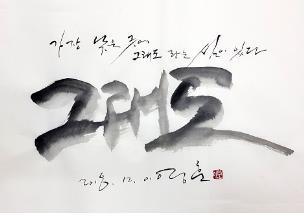 가장 낮은 곳에
그래도 라는 섬이 있다
그래도
2018. 12.